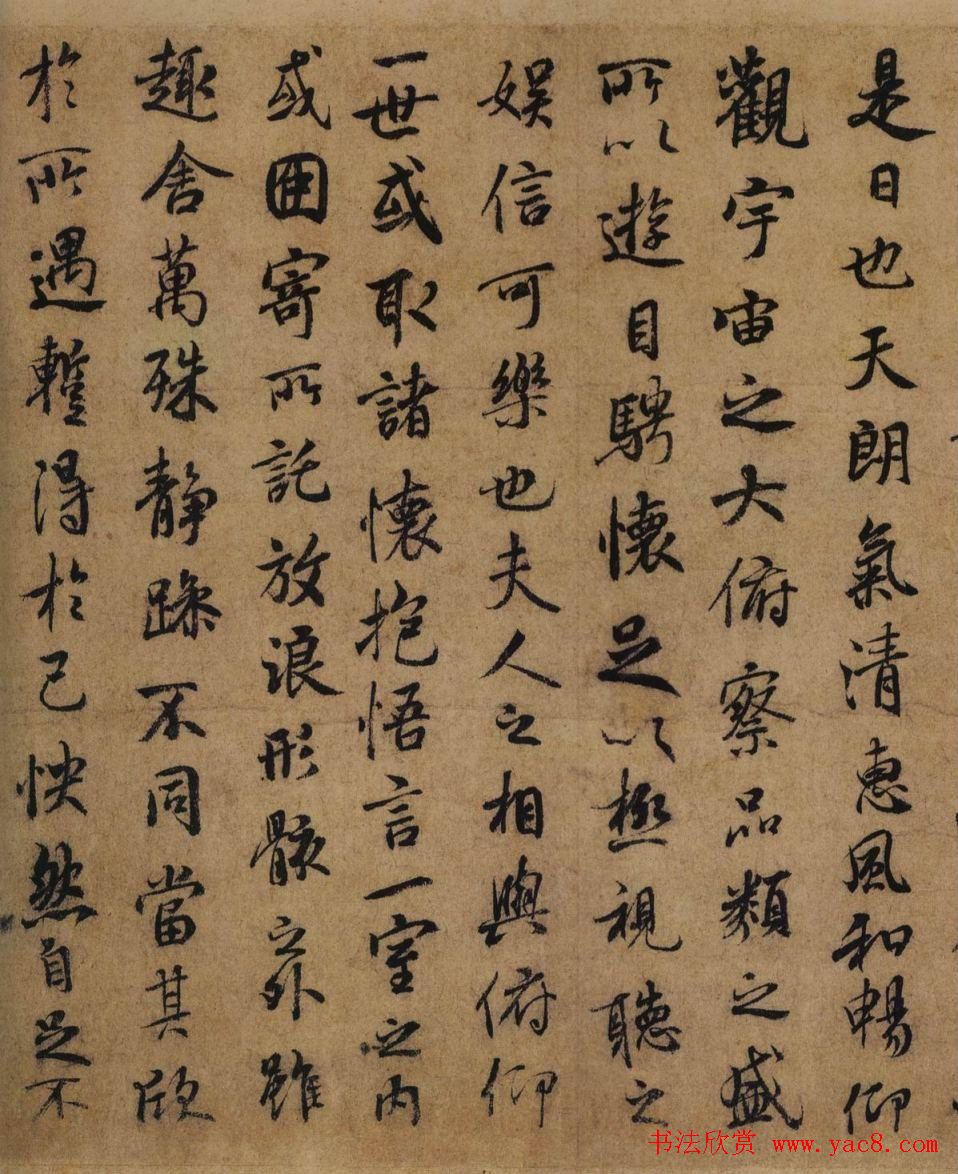 是日也天朗氣清惠風和暢仰
觀宇宙之大俯察品類之盛
所以遊目騁懷足以極視聽之
娛信可樂也夫人之相與俯仰
一世或取諸懷抱悟言一室之内
或因寄所託放浪形骸之外雖
趣舍萬殊静躁不同當其欣
於所遇蹔得於己怏然自足不
书法欣赏 www.yac8.com